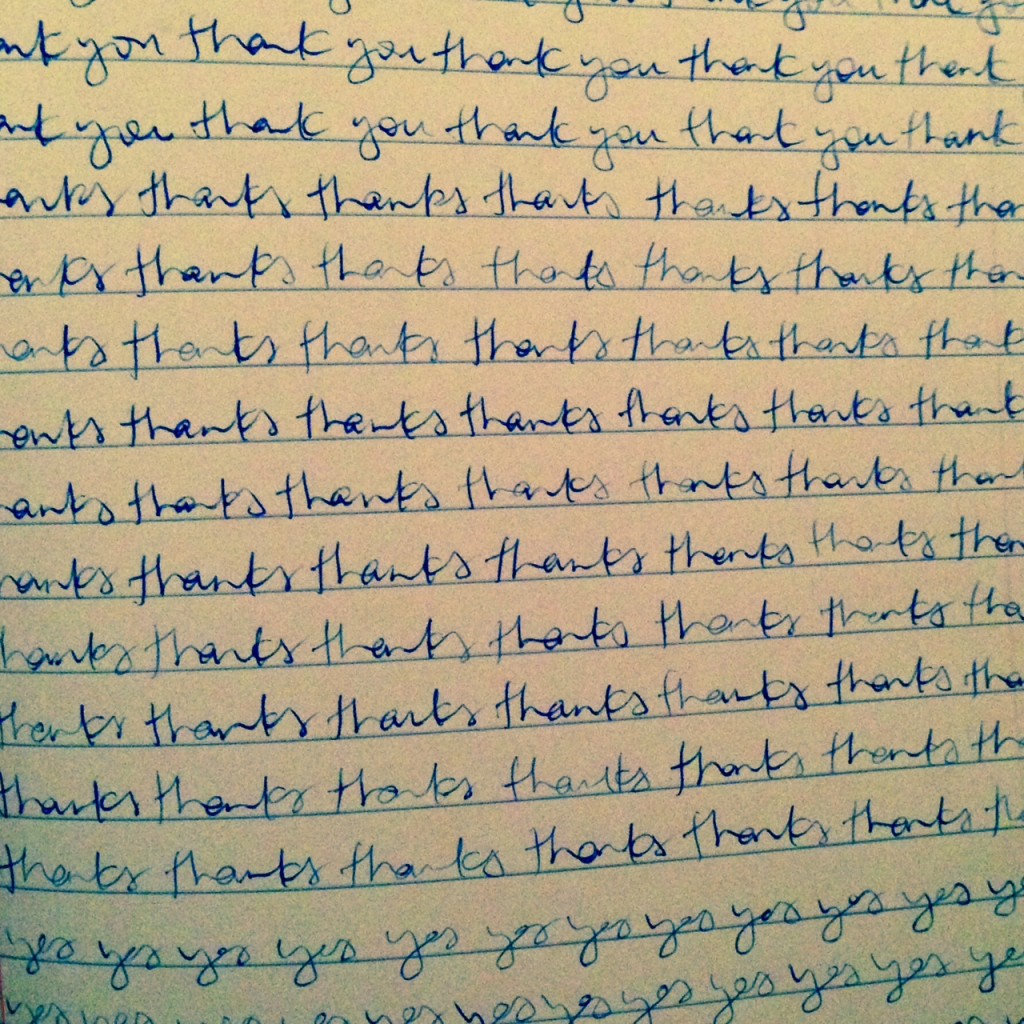 ank you thank you thank you thank you thank
ank you thank you thank you thank you thank
anks thanks thanks thanks thanks thanks than
anks thanks thanks thanks thanks thanks than
anks thanks thanks thanks thanks thanks thank
anks thanks thanks thanks thanks thanks thank
anks thanks thanks thanks thanks thanks than
hanks thanks thanks thanks thanks thanks than
hanks thanks thanks thanks thanks thanks tha
thanks thanks thanks thanks thanks thanks tha
thanks thanks thanks thanks thanks thanks th
thanks thanks thanks thanks thanks thanks th
yes yes yes yes yes yes yes yes yes yes yes ye
yes yes yes yes yes yes yes yes yes yes yes ye